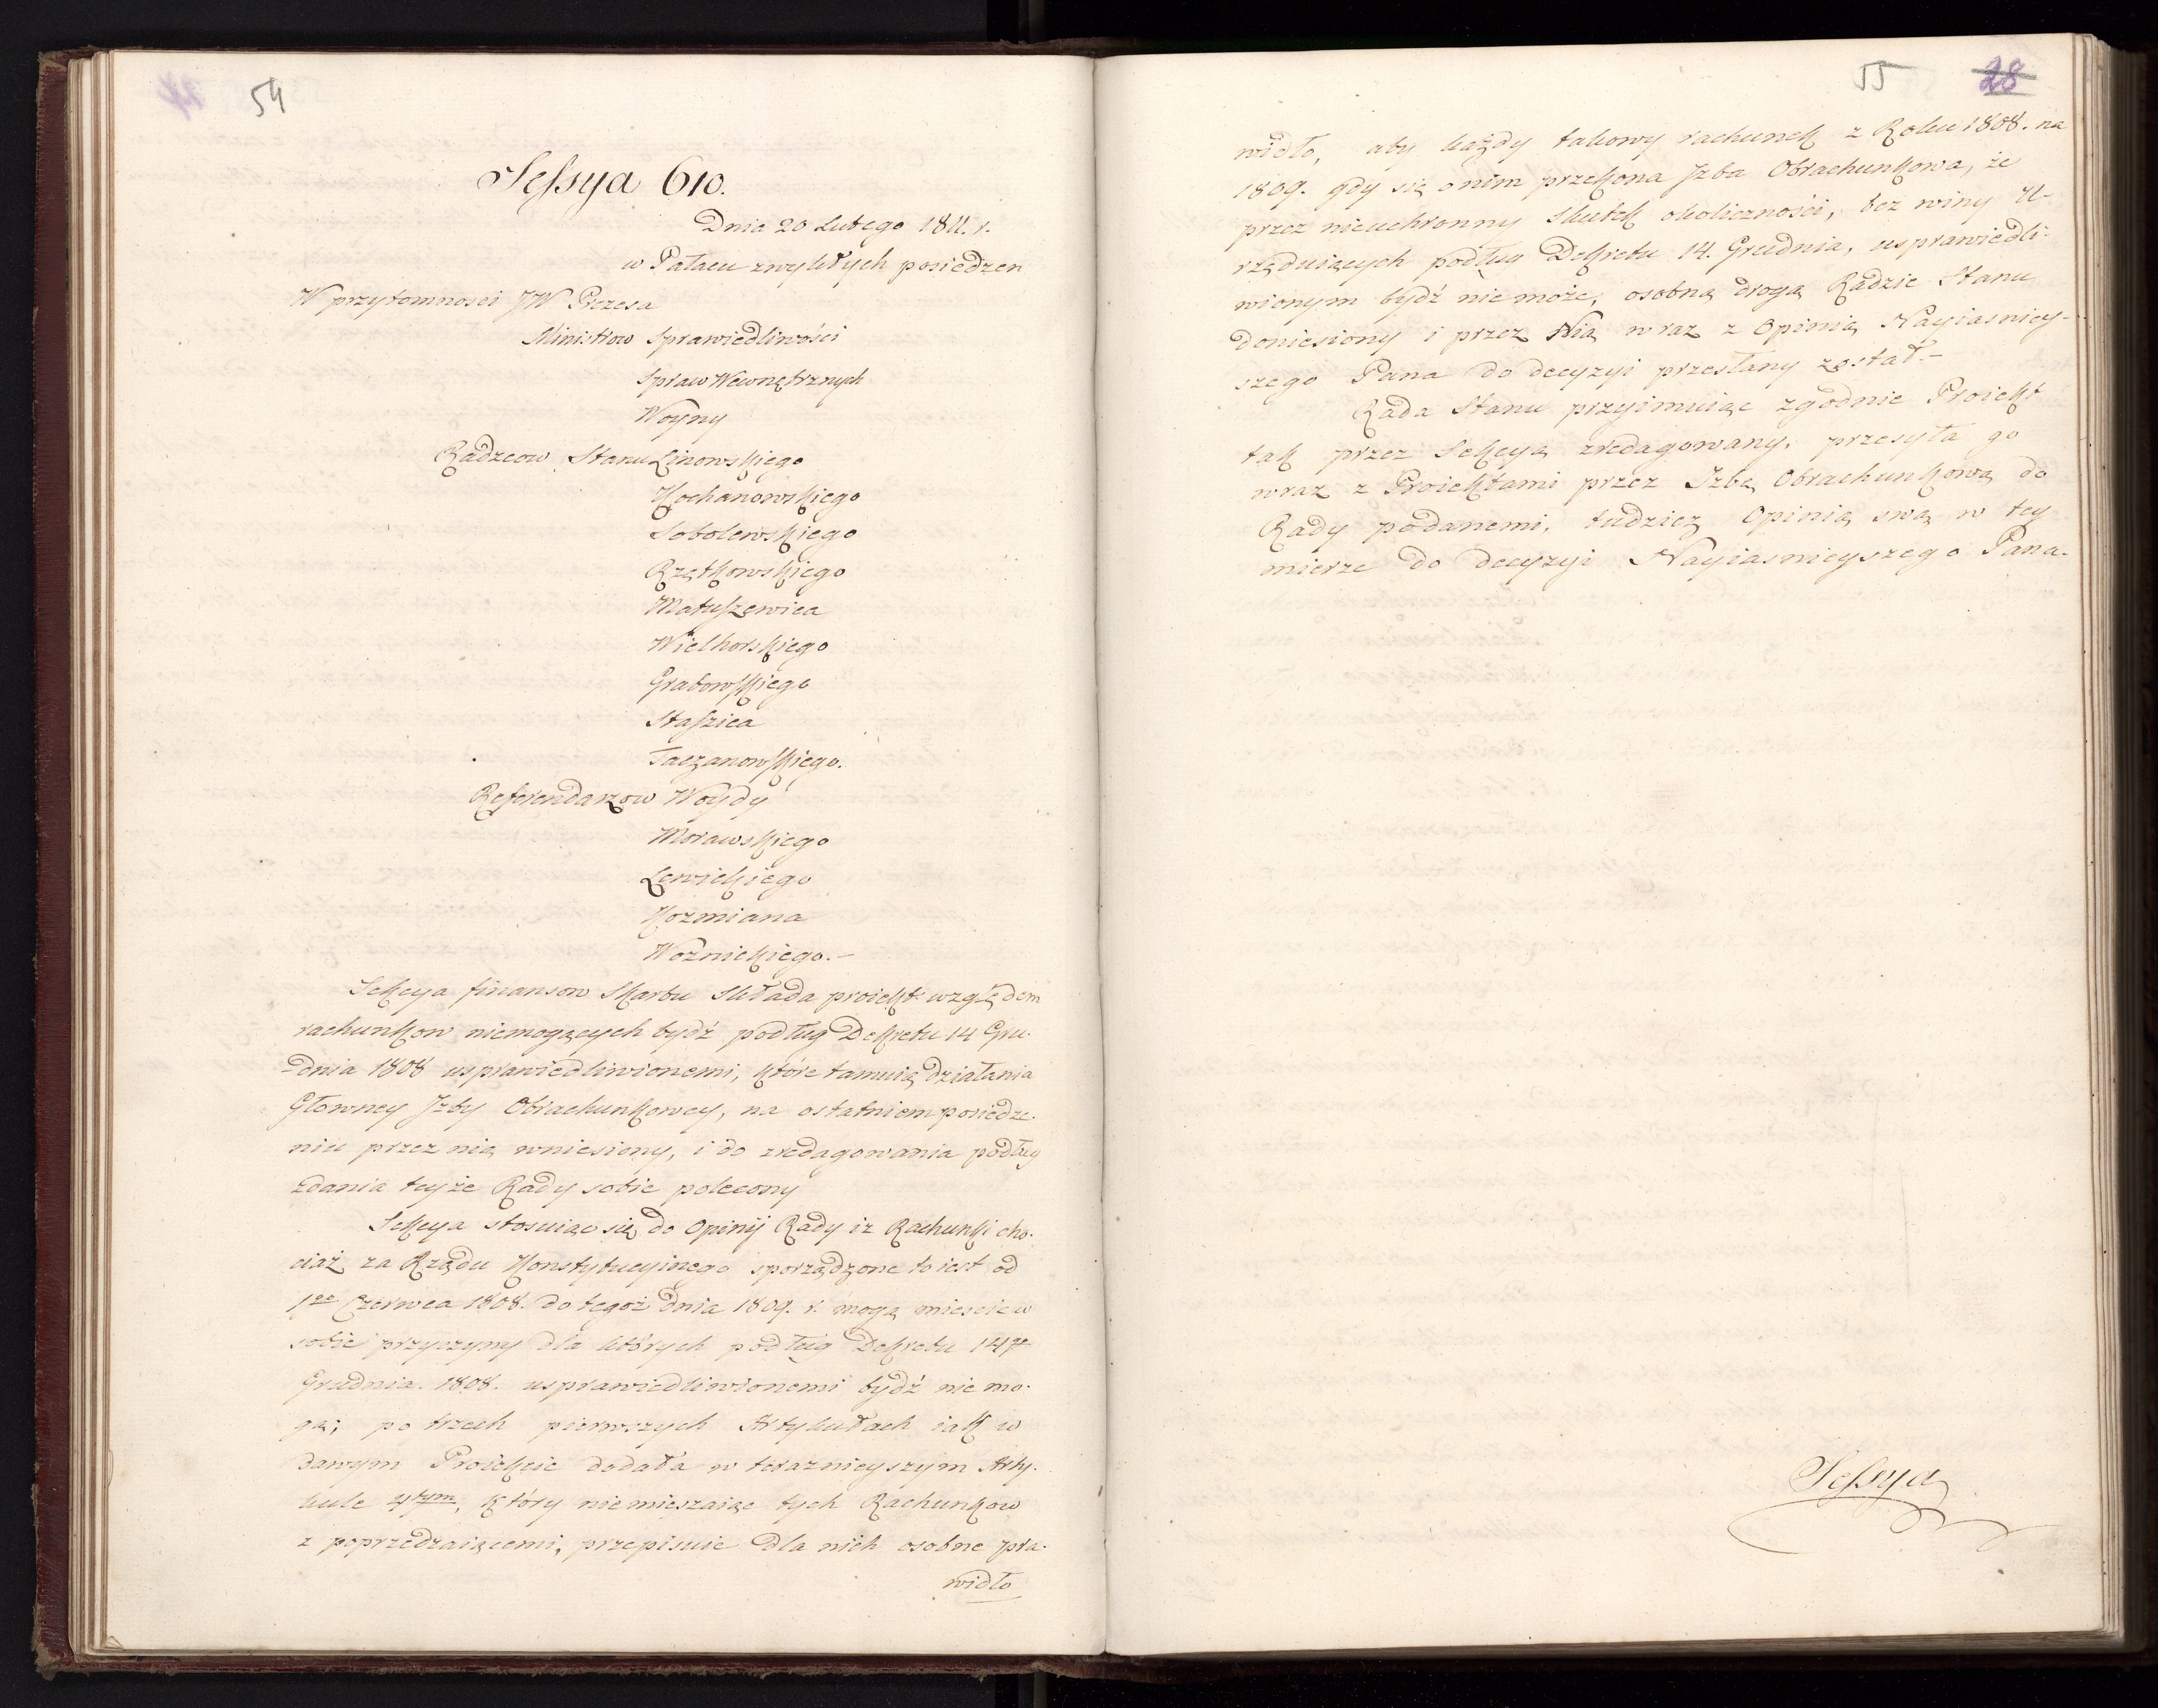 54
Sessya 610.
Dnia 20 Lutego 1811. r.
w Pałacu zwykłych posiedzen
W przytomnosci JW Prezesa
Ministrow Sprawiedliwości
Spraw Wewnętrznych
Woyny
Radzcow Stanu Linowskiego
Kochanowskiego
Sobolewskiego
Rzętkowskiego
Matuszewica
Wielhorskiego
Grabowskiego
Staszica
Taczanowskiego.
Referendarzow Woydy
Morawskiego
Lewickiego
Kozmiana
Woźnickiego.-
Sekcya finansow Skarbu składa proiekt względem
rachunkow niemogących bydź podług Dekretu 14 Gru-
dnia 1808 usprawiedliwionemi, które tamuią działania
Głowney Jzby Obrachunkowey, na ostatniem posiedze-
niu przez nią wniesiony, i do zredagowania podług
zdania teyże Rady sobie polecony
Sekcya stosuiąc się do Opinij Rady iz Rachunki cho-
ciaż za Rządu Konstytucyinego sporządzone to iest od
1go Czerwca 1808. do tegoż dnia 1809. r. mogą mieścić w
sobie przyczyny dla których podług Dekretu 14go
Grudnia. 1808. usprawiedliwionemi bydź nie mo-
gą; po trzech pierwszych Artykułach iak w
dawnym Proiekcie dodała w teraznieyszym Arty-
kule 4tym, który niemieszaiąc tych Rachunkow
z poprzedzaiącemi, przepisuie dla nich osobne pra-
widło
55 28
widło, aby każdy takowy rachunek z Roku 1808. na
1809. gdy się o nim przekona Jzba Obrachunkowa, że
przez nieuchronny skutek okoliczności, bez winy U-
rzęduiących podług Dekretu 14. Grudnia, usprawiedli-
wionym bydź nie może, osobną drogą Radzie Stanu
doniesiony i przez Nią wraz z Opinią Nayiasniey-
szego Pana do decyzyi przesłany został.-
Rada Stanu przyimuiąc zgodnie Proiekt
tak przez Sekcyą zredagowany, przesyła go
wraz z Proiektami przez Izbę Obrachunkową do
Rady podanemi, tudzież Opinią swą w tey
mierze do decyzyi Nayiasnieyszego Pana.
Sessya